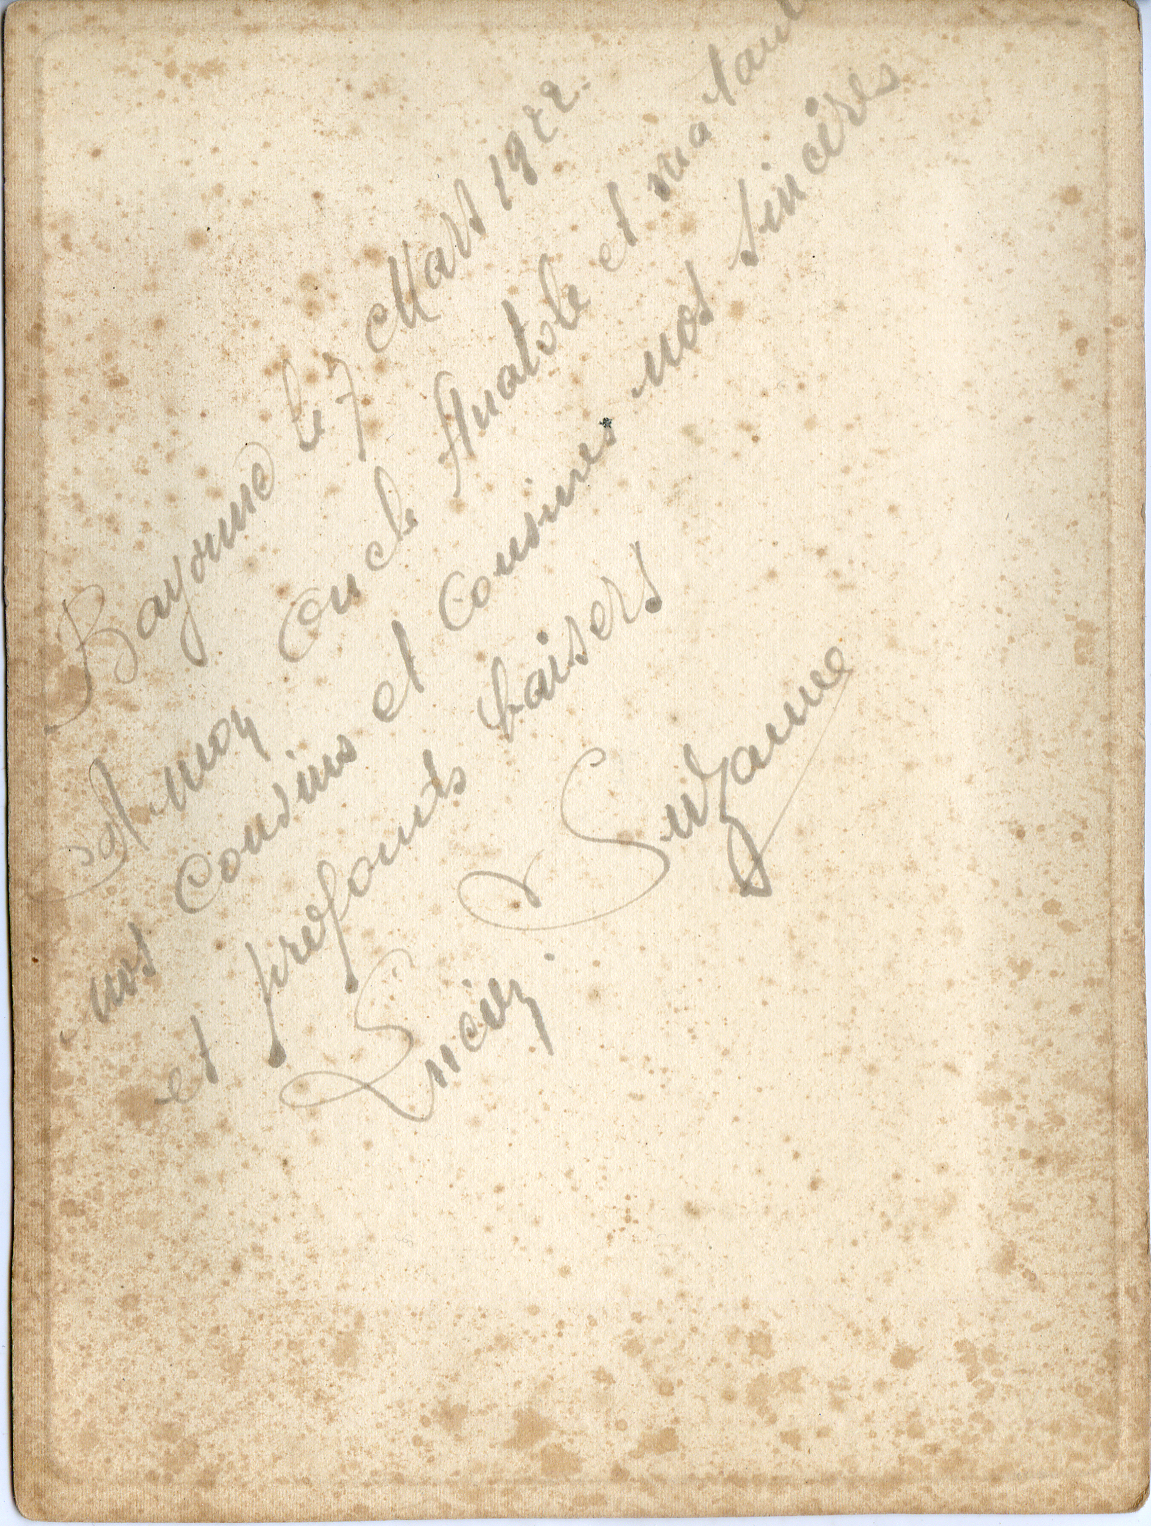 Bayonne le 7 Mars 1922.
A mon oncle Anatole et ma tant
nos cousins et cousines nos sincères
et profonds baisers
Lucien. Suzanne